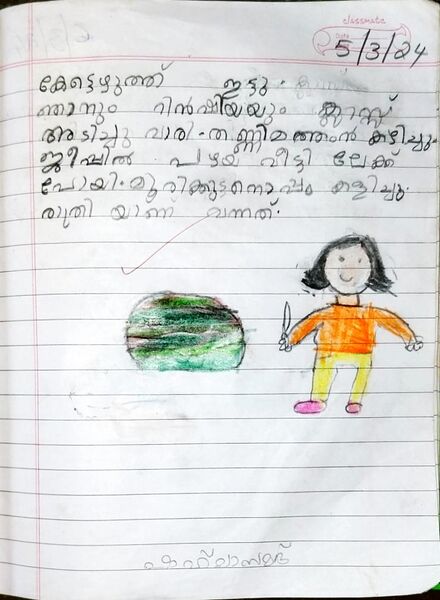 classmate
Date
5/3/24
കേട്ടെഴുത്ത് ഇട്ടു.
ഞാനും റിൻഷിയയും ക്ലാസ്സ്
അടിച്ചു വാരി. തണ്ണിമത്തൻ കഴിച്ചു.
ജീപ്പിൽ പഴയ വീട്ടി ലേക്ക്
പോയി. മൂരിക്കുട്ടനൊപ്പം കളിച്ചു.
രാത്രി യാണ് വന്നത്.